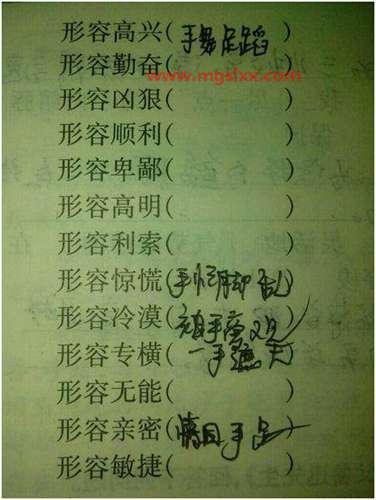 形容高兴(手舞足蹈)
形容勤奋( )
www.mgslxx.com
形容凶狠( )
形容顺利( )
形容卑鄙( )
形容高明( )
形容利索( )
形容惊慌(手忙脚乱)
形容冷漠( )
形容专横(一手遮天)
形容无能( )
形容亲密(情同手足)
形容敏捷( )